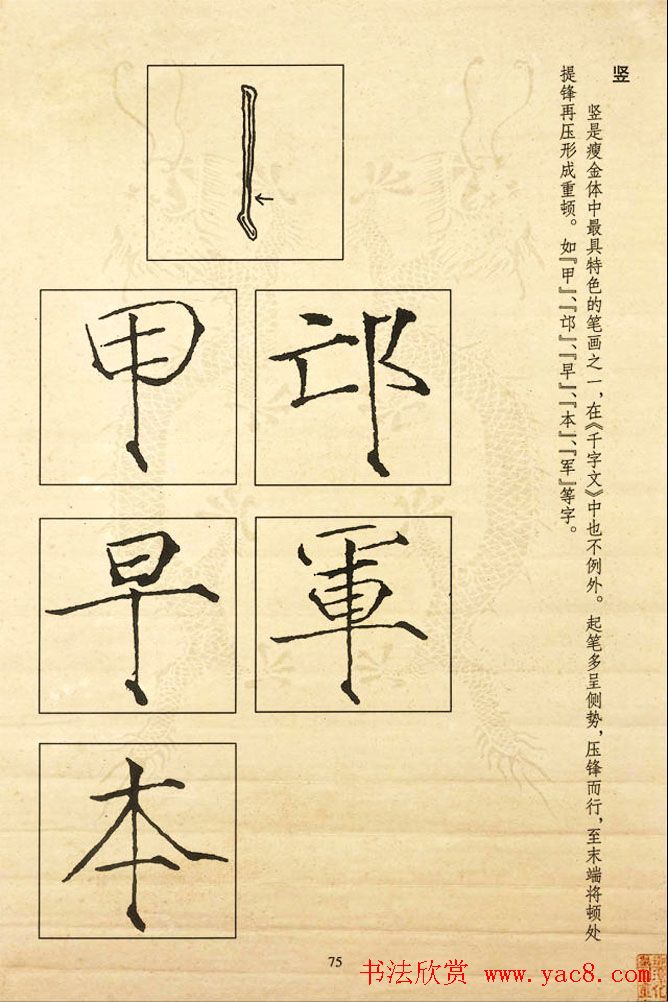 竖
竖是瘦金体中最具特色的笔画之一，在《千字文》中也不例外。起笔多呈侧势，压锋而行，至末端将顿处
提锋再压形成重顿。如『甲』、『邙』、『早』、『本』、『军』等字。
邙
甲
軍
早
本
75
书法欣赏 www.yac8.com